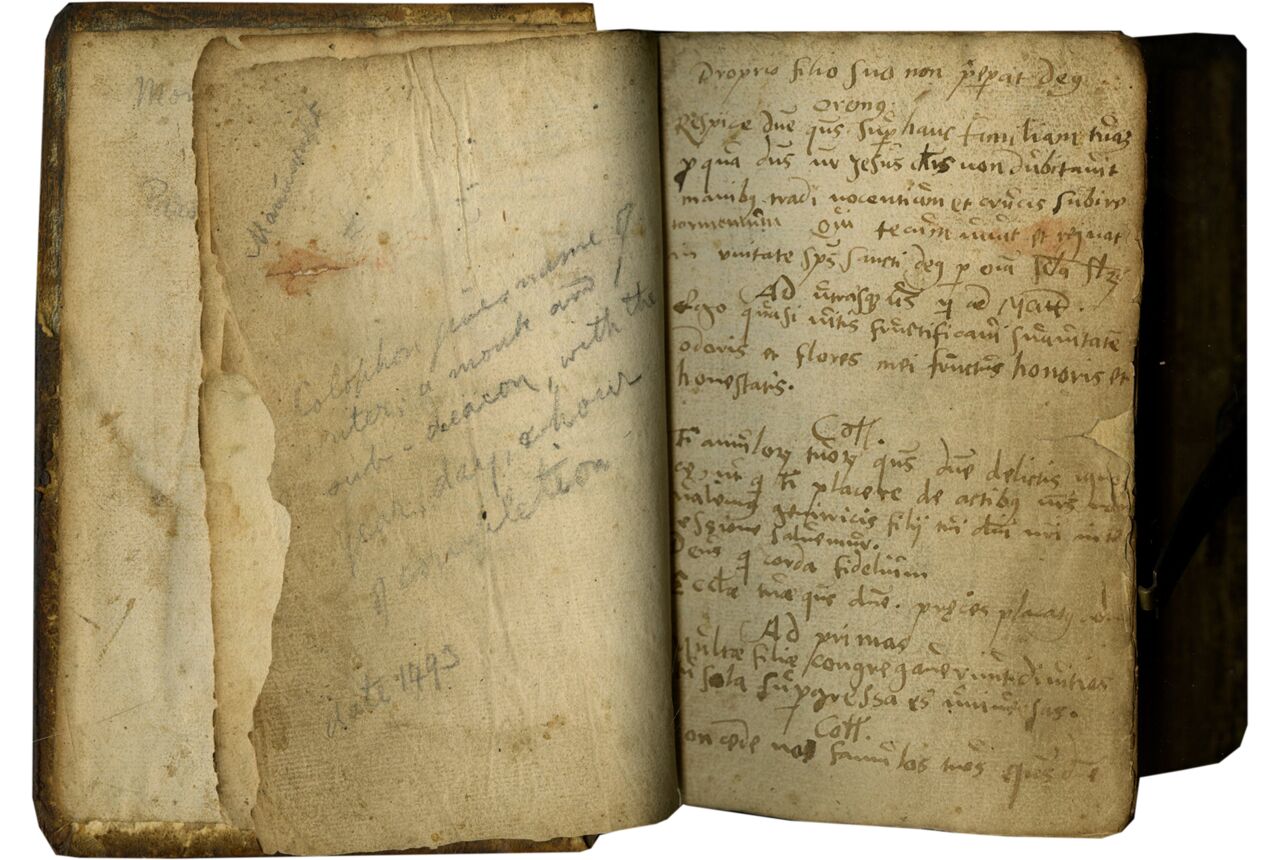 Manuscript
Colophon gives name of
writer, a monk and
sub-deacon, with the
year, day, & hour
of completion
date 1493
Proprio filio suo non peperat deq
Oremq
Respice dne qus sup hanc familiam tuā
p qua dns nr Jesus chrs non dubitavit
manibq tradi nocentium et crucis subire
tormentum Qui tecum vivit et regnat
in unitate sps sancti deq p oīa
Ad
Ego quasi vitis fructificavi suavitatē
odoris et flores mei fructus honoris et
honestatis.
Coll.
famulorq tuorq qus dne delictis
q tī placere de actibq nrs
genitricis filij tui dni nri
salvemur.
Deus q corda fidelium
Ecclæ tuæ qus dne. preces placatq
Ad primas
Multæ filiæ congregaverunt divitias
tu sola supgressa es
Coll.
famulos tuos qus dne